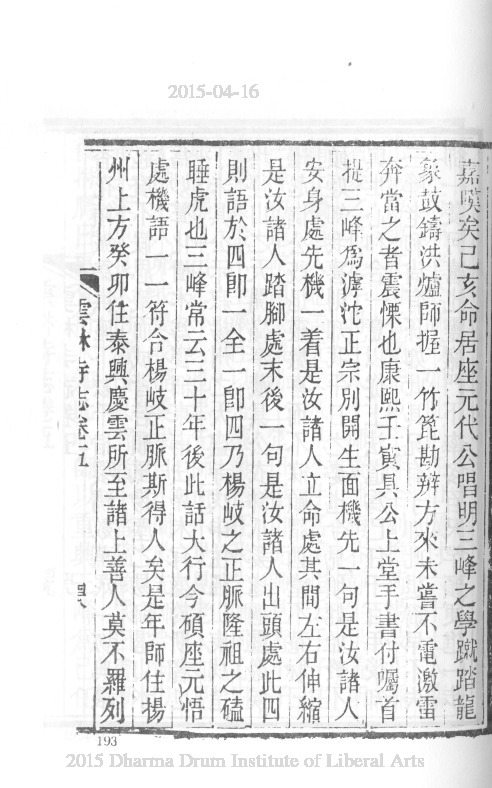 2015-04-16
嘉嘆矣己亥命居座元代公唱明三峰之學蹴踏龍
象鼓鑄洪爐師握一竹篦勘辨方來未嘗不電激雷
奔當之者震慄也康熙壬寅具公上堂手書付囑首
提三峰爲滹沱正宗別開生面機先一句是汝諸人
安身處先機一着是汝諸人立命處其間左右伸縮
是汝諸人踏腳處末後一句是汝諸人出頭處此四
則語於四卽一全一卽四乃楊岐之正脈隆祖之磕
睡虎也三峰常云三十年後此話大行今碩座元悟
處機語一一符合楊岐正脈斯得人矣是年師住揚
州上方癸卯住泰興慶雲所至諸上善人莫不羅列
雲林寺志卷五
193
2015 Dharma Drum Institute of Liberal Arts